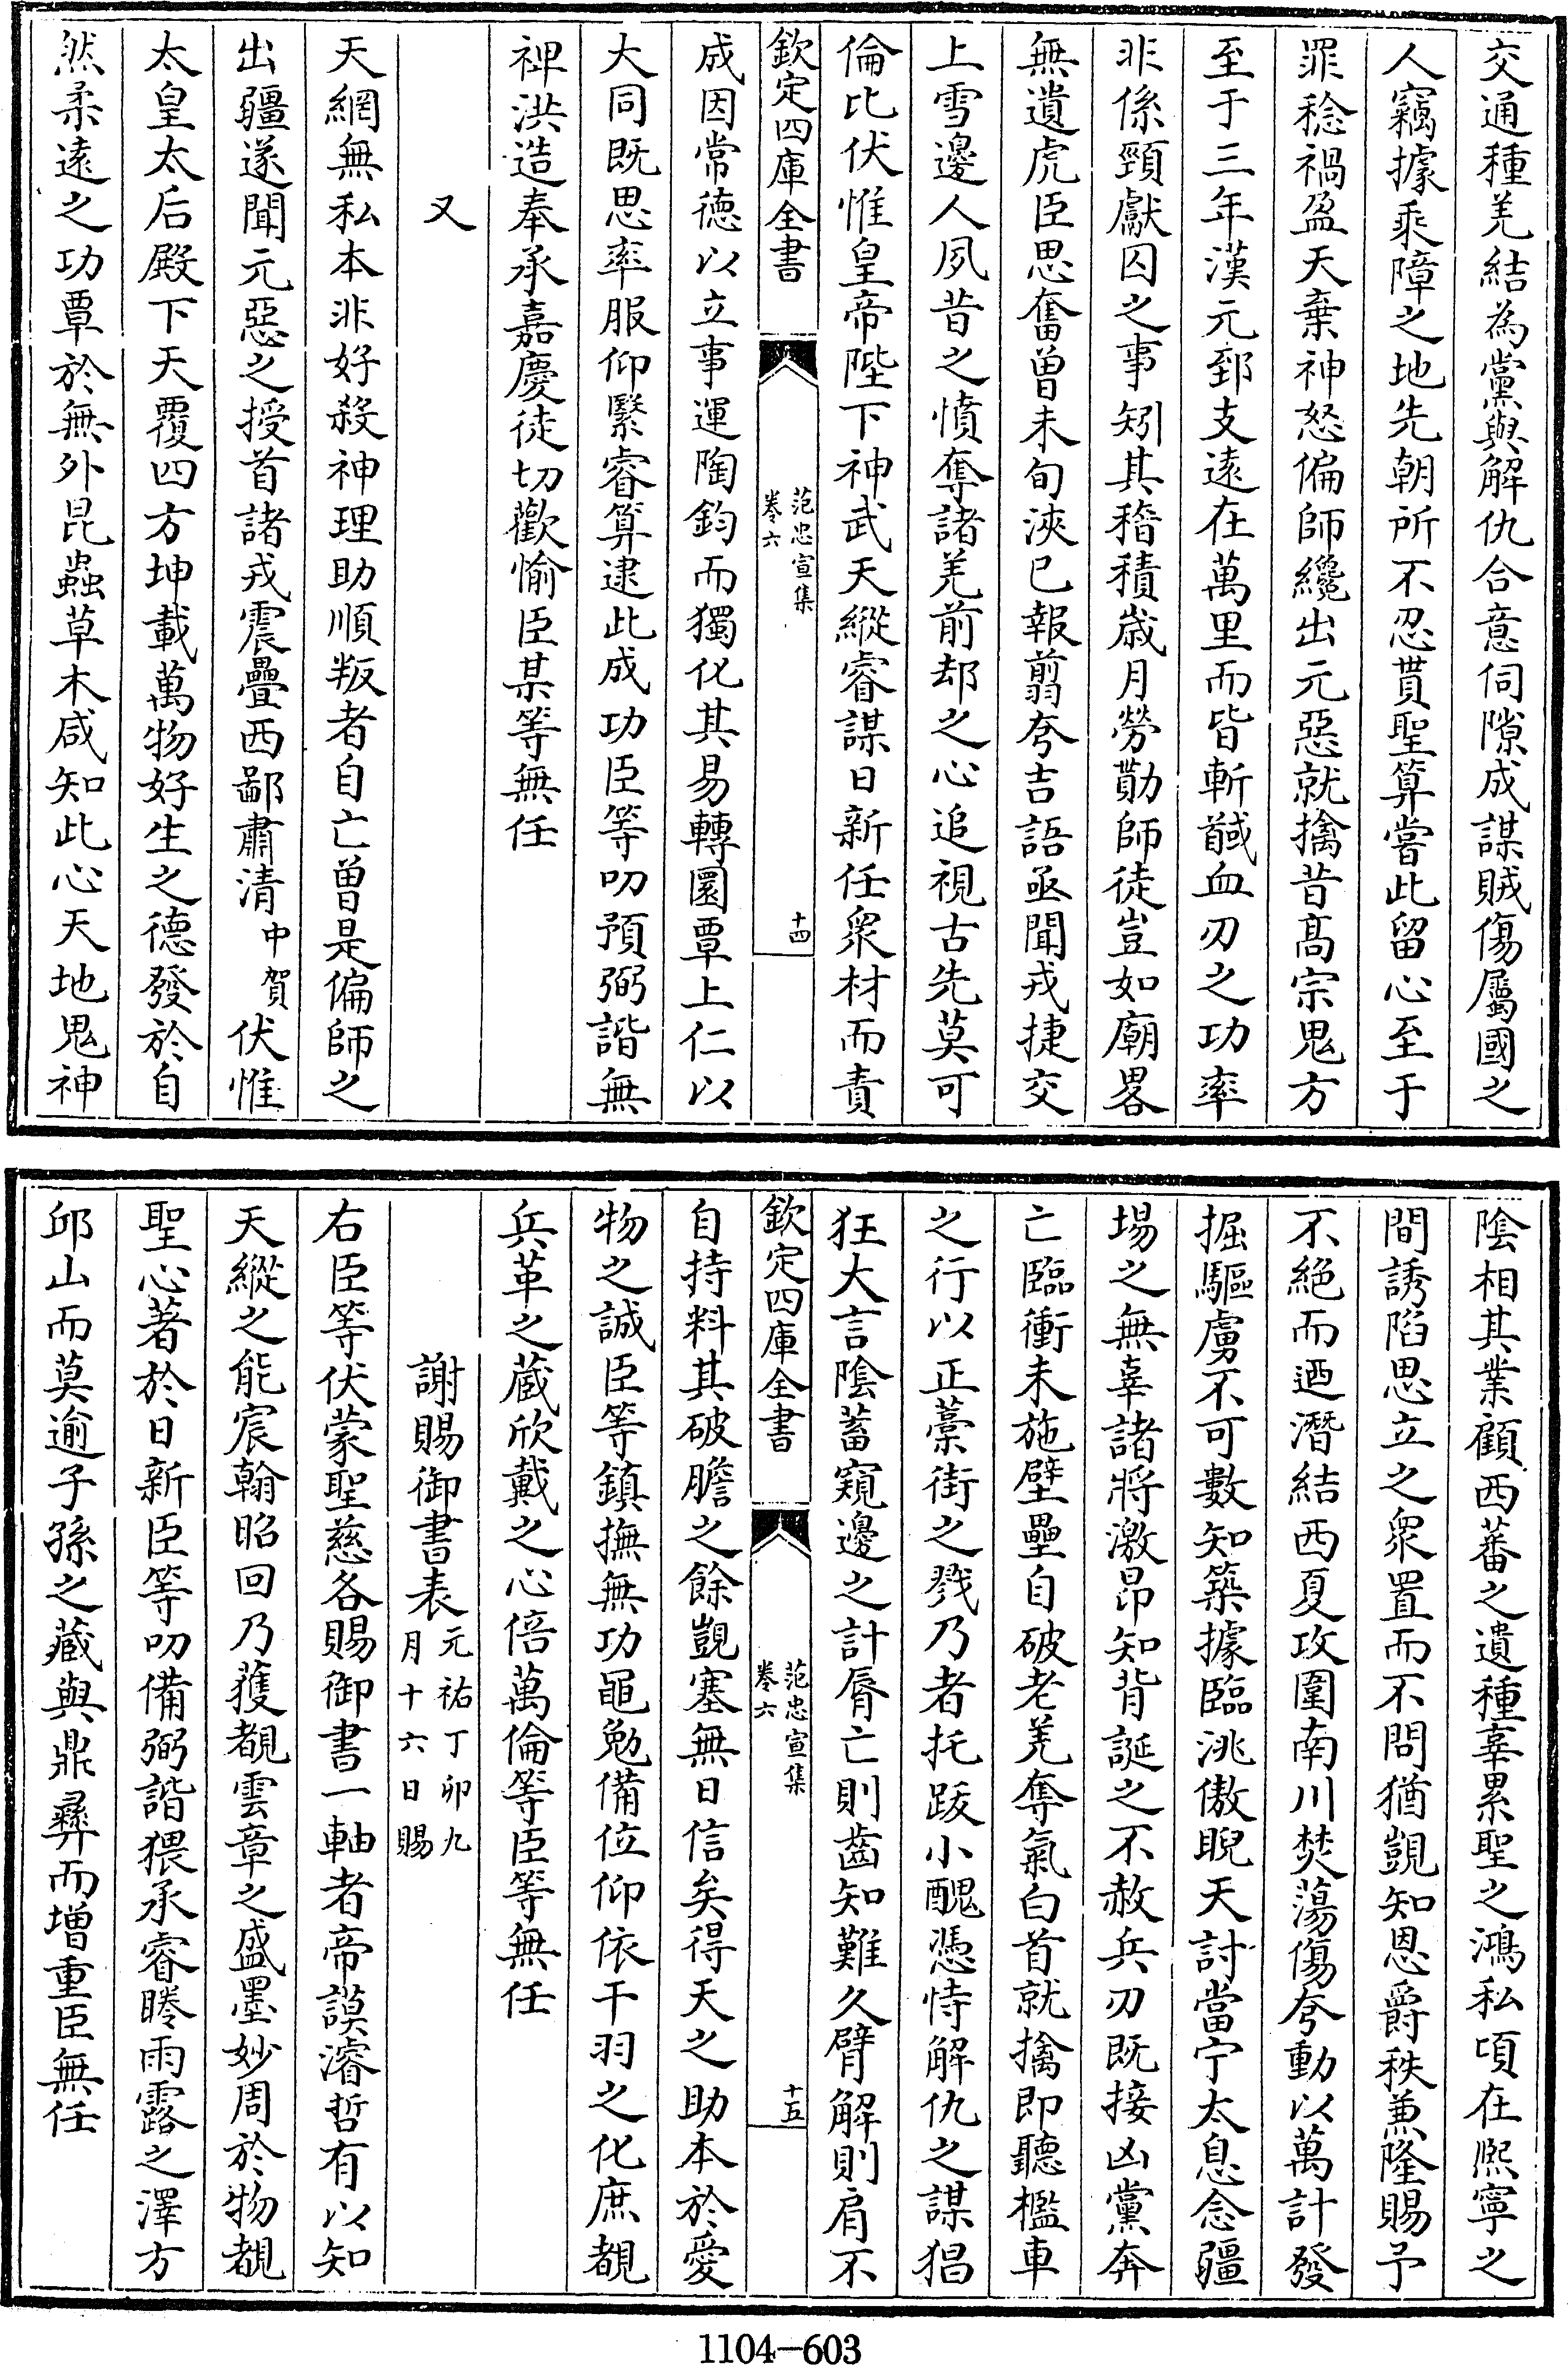 交通種羌結為黨與解仇合意伺隙成謀賊傷屬國之
人竊據乘障之地先朝所不忍貫聖算嘗此留心至于
罪稔禍盈天棄神怒偏師纔出元惡就擒昔髙宗鬼方
至于三年漢元郅支遠在萬里而皆斬馘血刃之功率
非係頸獻囚之事矧其稽積歳月勞勩師徒豈如廟畧
無遺虎臣思奮曽未旬浹已報翦夸吉語亟聞戎捷交
上雪邊人夙昔之憤奪諸羌前却之心追視古先莫可
倫比伏惟皇帝陛下神武天縱睿謀日新任衆材而責
欽定四庫全書
范忠宣集
卷六
十四
成因常徳以立事運陶鈞而獨化其易轉圜覃上仁以
大同既思率服仰繄睿算逮此成功臣等叨預弼諧無
裨洪造奉承嘉慶徒切歡愉臣某等無任
又
天網無私本非好殺神理助順叛者自亡曽是偏師之
出疆遂聞元惡之授首諸戎震疊西鄙肅清中賀伏惟
太皇太后殿下天覆四方坤載萬物好生之德發於自
然柔逺之功覃於無外昆蟲草木咸知此心天地鬼神
陰相其業顧西蕃之遺種辜累聖之鴻私頃在熈寧之
間誘陷思立之衆置而不問猶覬知恩爵秩兼隆賜予
不絶而廼潛結西夏攻圍南川焚蕩傷夸動以萬計發
掘驅虜不可數知築據臨洮傲睨天討當宁太息念疆
場之無辜諸將激昂知背誕之不赦兵刃既接凶黨奔
亡臨衝未施壁壘自破老羌奪氣白首就擒即聽檻車
之行以正藁街之戮乃者托跋小醜憑恃解仇之謀猖
狂大言陰蓄窺邊之計脣亡則齒知難久臂解則肩不
欽定四庫全書
范忠宣集
卷六
十五
自持料其破膽之餘覬塞無日信矣得天之助本於愛
物之誠臣等鎮撫無功黽勉備位仰依干羽之化庶覩
兵革之蔵欣戴之心倍萬倫等臣等無任
謝賜御書表元祐丁卯九
月十六日賜
右臣等伏蒙聖慈各賜御書一軸者帝謨濬哲有以知
天縱之能宸翰昭回乃獲覩雲章之盛墨妙周於物覩
聖心著於日新臣等叨備弼諧猥承睿睠雨露之澤方
邱山而莫逾子孫之藏與鼎彞而增重臣無任
1104-603